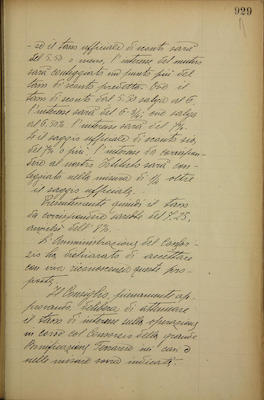 929
-sè il tasso ufficiale di sconto sarà
del 5.50 o meno, l'interesse del mutuo
sarà conteggiato un punto più del
tasso di sconto predetto. Ove il
tasso di sconto dal 5.50 salga al 6.
l'interesse sarà del 6 ¾; ove salga
al 6.50% l'interesse sarà del 7%.
Se il saggio ufficiale di sconto sia
del 7% o più l'interesse da corrispon-
dere al nostro Istituto sarà con-
teggiato nella misura di ¼ oltre
il saggio ufficiale.
Presentemente quindi il tasso
da corrispondere sarebbe del 7.25,
anziché dell' 8%.
L'Amministrazione del Consor-
zio ha dichiarato di accettare
con viva riconoscenza queste pro-
poste.
Il Consiglio, pienamente ap-
provando delibera di attenuare
il tasso di interesse sulle operazioni
in corso col Consorzio della grande
Bonificazione Ferrarese nei casi e
nelle misure sovra indicate.